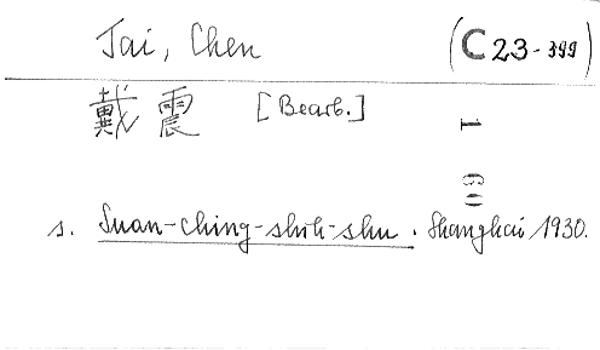 Tai, Chen (C 23-399)
戴震 [Bearb.]
s. Suan-ching-shih-shu. Shanghai 1930.